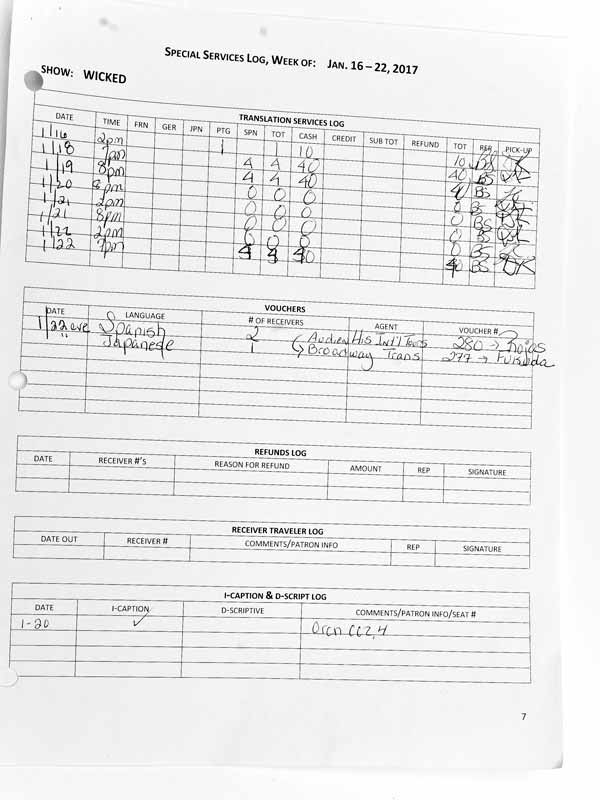 SPECIAL SERVICES LOG, WEEK OF: JAN. 16 – 22, 2017
SHOW: WICKED
TRANSLATION SERVICES LOG
DATE TIME FRN GER JPN PTG SPN TOT CASH CREDIT SUB TOT REFUND TOT REP PICK-UP
1/16 2pm 1 1 10 10 BS
1/18 7pm 4 4 40 40 BS
1/19 8pm 4 4 40 40 BS
1/20 8pm 0 0 0 0 BS
1/21 2pm 0 0 0 0 BS
1/21 8pm 0 0 0 0 BS
1/22 2pm 0 0 0 0 BS
1/22 7pm 4 4 40 40 BS
VOUCHERS
DATE LANGUAGE # OF RECEIVERS AGENT VOUCHER #
1/22 eve Spanish 2 His Int'l Tours 280 → Rojas
" Japanese 1 Broadway Trans 277 → Fukuda
REFUNDS LOG
DATE RECEIVER #'S REASON FOR REFUND AMOUNT REP SIGNATURE
RECEIVER TRAVELER LOG
DATE OUT RECEIVER # COMMENTS/PATRON INFO REP SIGNATURE
I-CAPTION & D-SCRIPT LOG
DATE I-CAPTION D-SCRIPTIVE COMMENTS/PATRON INFO/SEAT #
1-20 ✓ Orch CC2,4
7